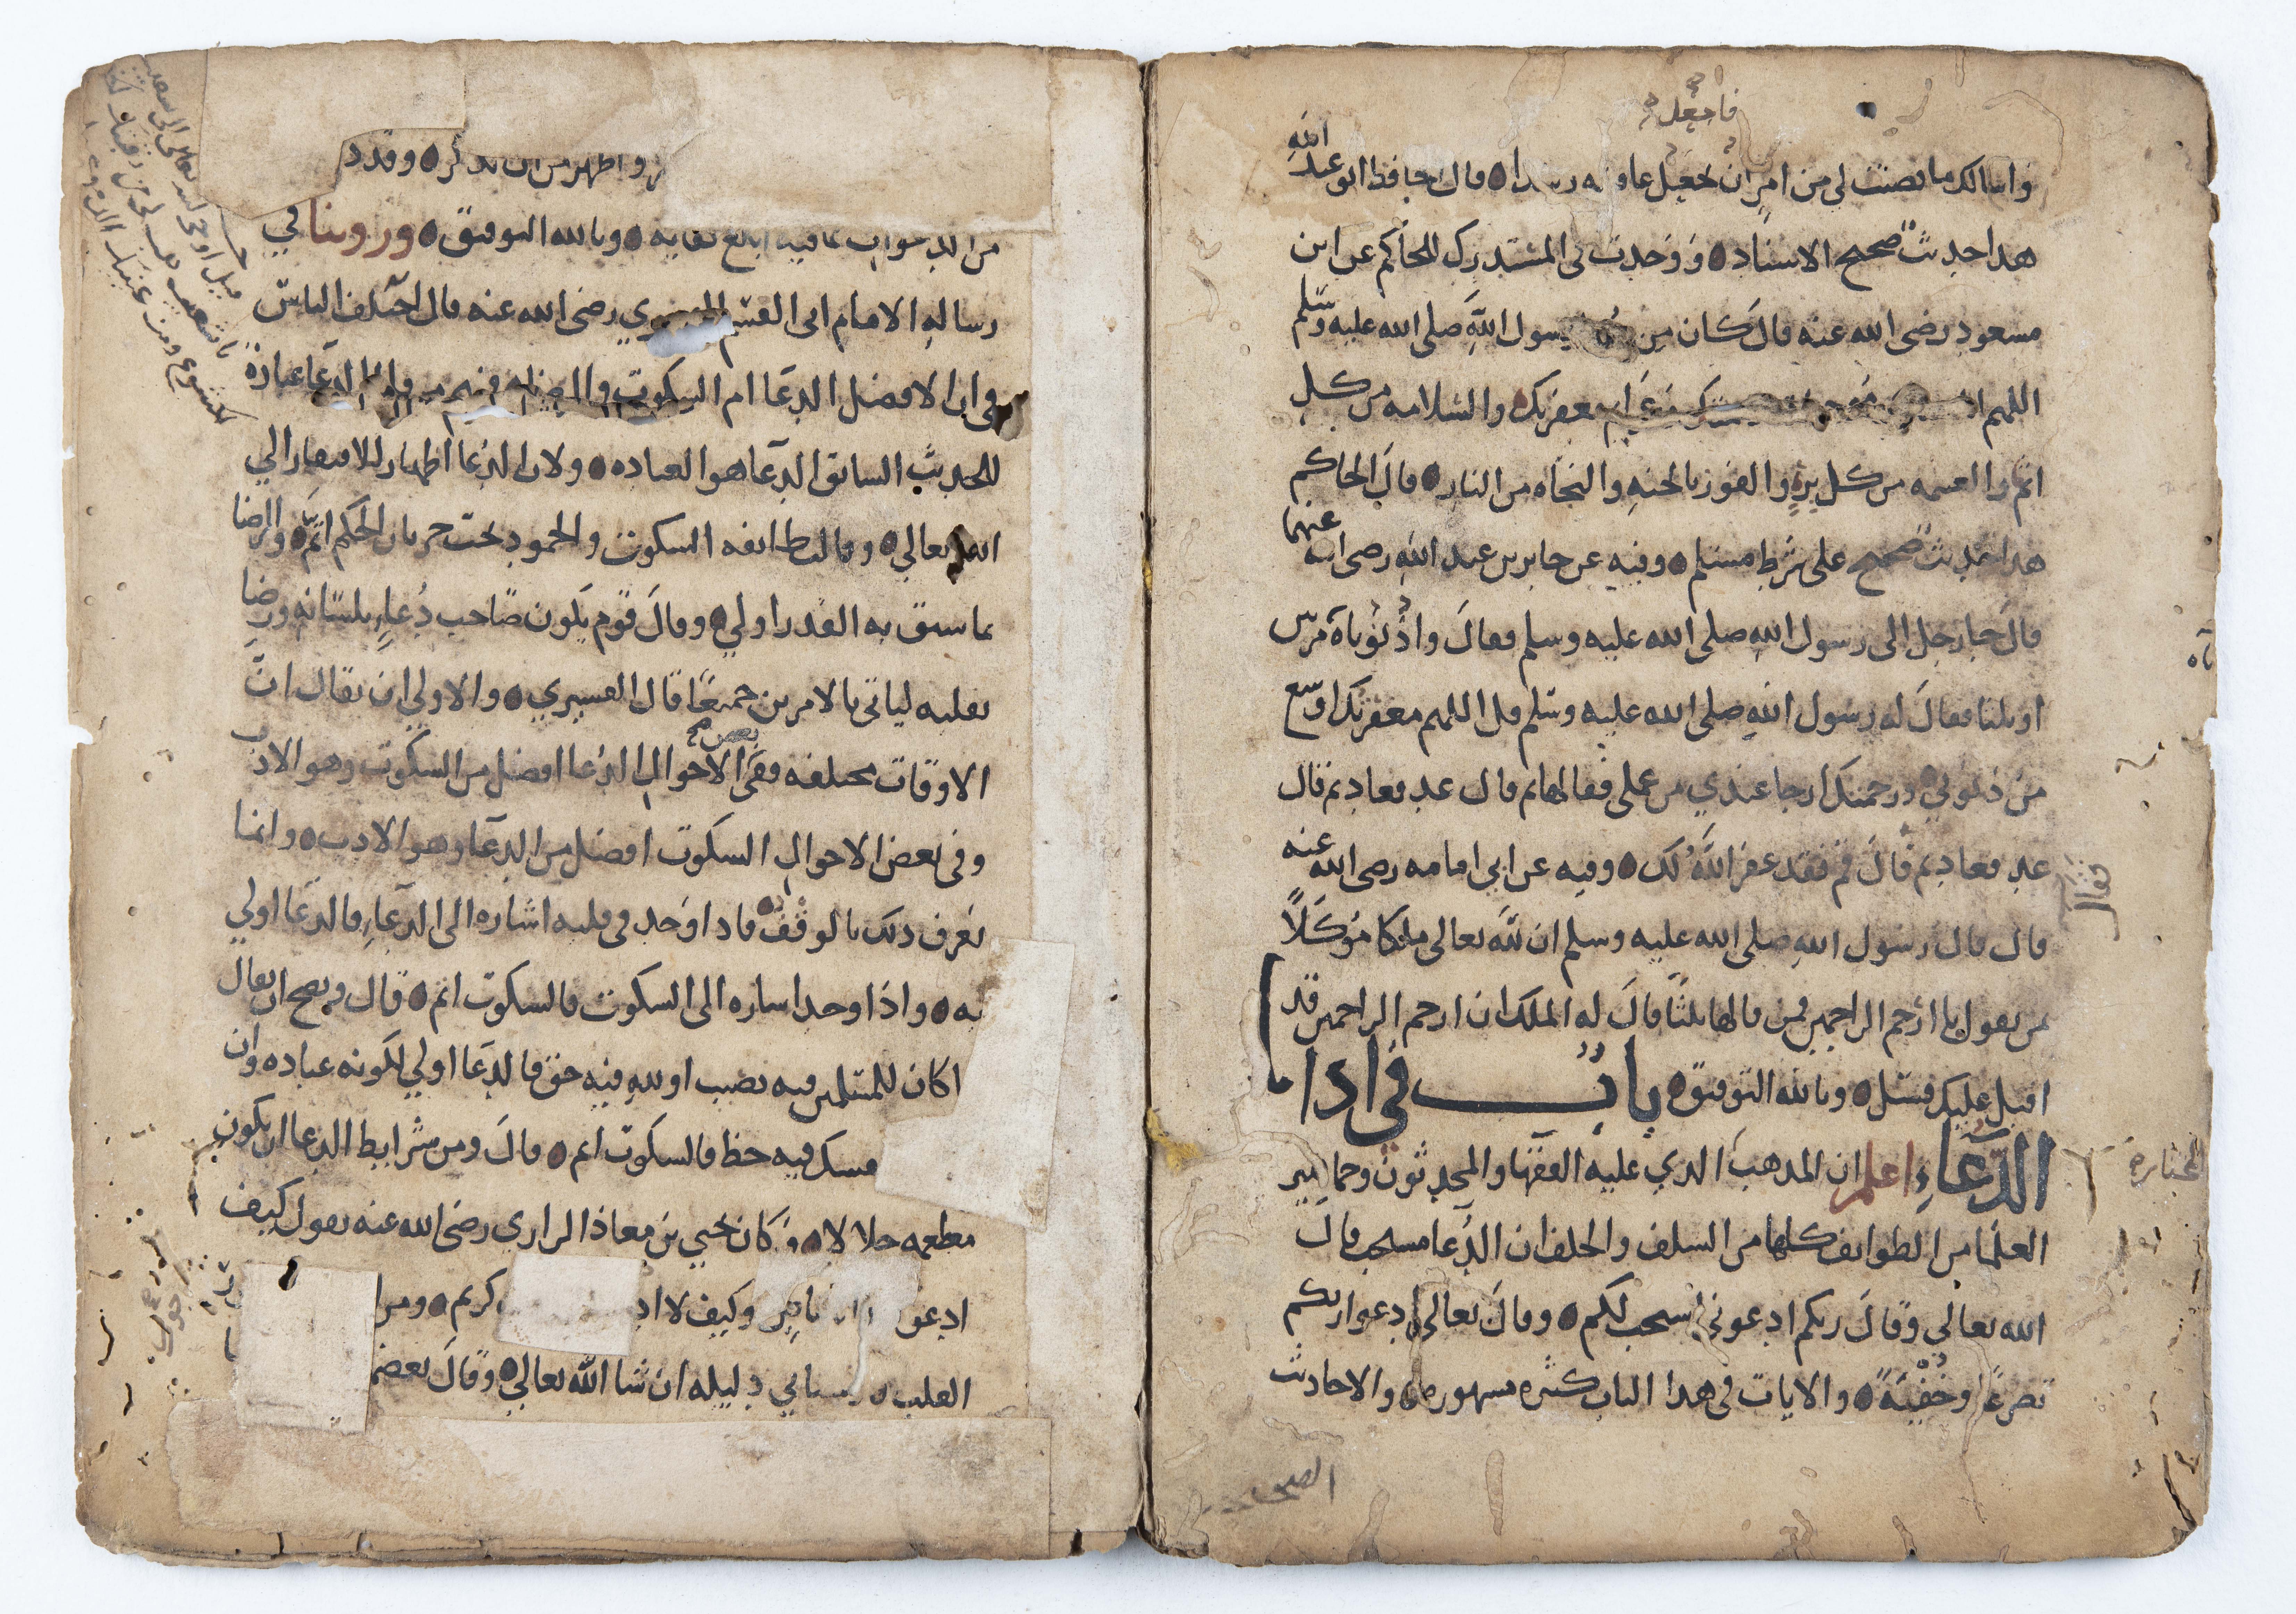 فاجعل
واسالك ما قضيت لي من امر ان تجعل عاقبته رشدا ه قال الحافظ ابو عبد الله
هذا حديث صحيح الاسناد ه ووجدت في المستدرك للحاكم عن ابن
مسعود رضي الله عنه قال كان من رسول الله صلى الله عليه وسلم
اللهم مغفرتك والسلامه من كل
اثم والغنيمه من كل بر والفوز بالجنه والنجاه من النار ه قال الحاكم
هذا حديث صحيح على شرط مسلم ه وفيه عن جابر بن عبد الله رضي الله عنهما
قال جا رجل الى رسول الله صلى الله عليه وسلم فقال واذنوباه مرتين
او ثلثا فقال له رسول الله صلى الله عليه وسلم قل اللهم مغفرتك اوسع
من ذنوبي ورحمتك ارجا عندي من عملي فقالها ثم قال عد فعاد ثم قال
عد فعاد ثم قال قم فقد غفر الله لك ه وفيه عن ابي امامه رضي الله عنه
قال قال رسول الله صلى الله عليه وسلم ان لله تعالى ملكا موكلا
بمن يقول يا ارحم الراحمين فمن قالها ثلثا قال له الملك ان ارحم الراحمين قد
اقبل عليك فسل ه وبالله التوفيق ه باب في اداب
الدعاء اعلم ان المذهب الذي عليه الفقها والمحدثون وجماهير
العلما من الطوايف كلها من السلف والخلف ان الدعا مستحب قال
الله تعالى وقال ربكم ادعوني استجب لكم ه وقال تعالى ادعوا ربكم
تضرعا وخفية ه والايات في هذا الباب كثيره مشهوره ه والاحاديث
فقال
واظهر من ان تذكر ه وقد
من الدعوات ما فيه ابلغ كفايه ه وبالله التوفيق ه وروينا في
رساله الامام ابي القسم القشيري رضي الله عنه قال اختلف الناس
في ان الافضل الدعا ام السكوت والرضا فمنهم من قال الدعا عبادة
للحديث السابق الدعا هو العباده ه ولان الدعا اظهار للافتقار الي
الله تعالي ه وقالت طايفه السكوت والخمود تحت جريان الحكم اتم والرضا
بما سبق به القدر اولي ه وقال قوم يكون صاحب دعاء بلسانه ورضا
بقلبه لياتي بالامرين جميعا قال القشيري ه والاولي ان يقال ان
بعض صح
الاوقات مختلفه ففي الاحوال الدعا افضل من السكوت وهو الادب
وفي بعض الاحوال السكوت افضل من الدعا وهو الادب ه وانما
يعرف ذلك بالوقت ه فاذا وجد في قلبه اشاره الى الدعاء فالدعا اولي
به ه واذا وجد اشاره الى السكوت فالسكوت اتم ه قال ويصح ان يقال
ا كان للمسلمين فيه نصيب او لله فيه حق فالدعا اولي لكونه عباده وان
فسك فيه حظ فالسكوت اتم ه قال ومن شرايط الدعا ان يكون
مطعمه حلالا ه وكان يحيي بن معاذ الرازي رضي الله عنه يقول كيف
ادعوك وكيف لا كريم ه ومن
القلب دليله ان شا الله تعالي ه وقال بعض